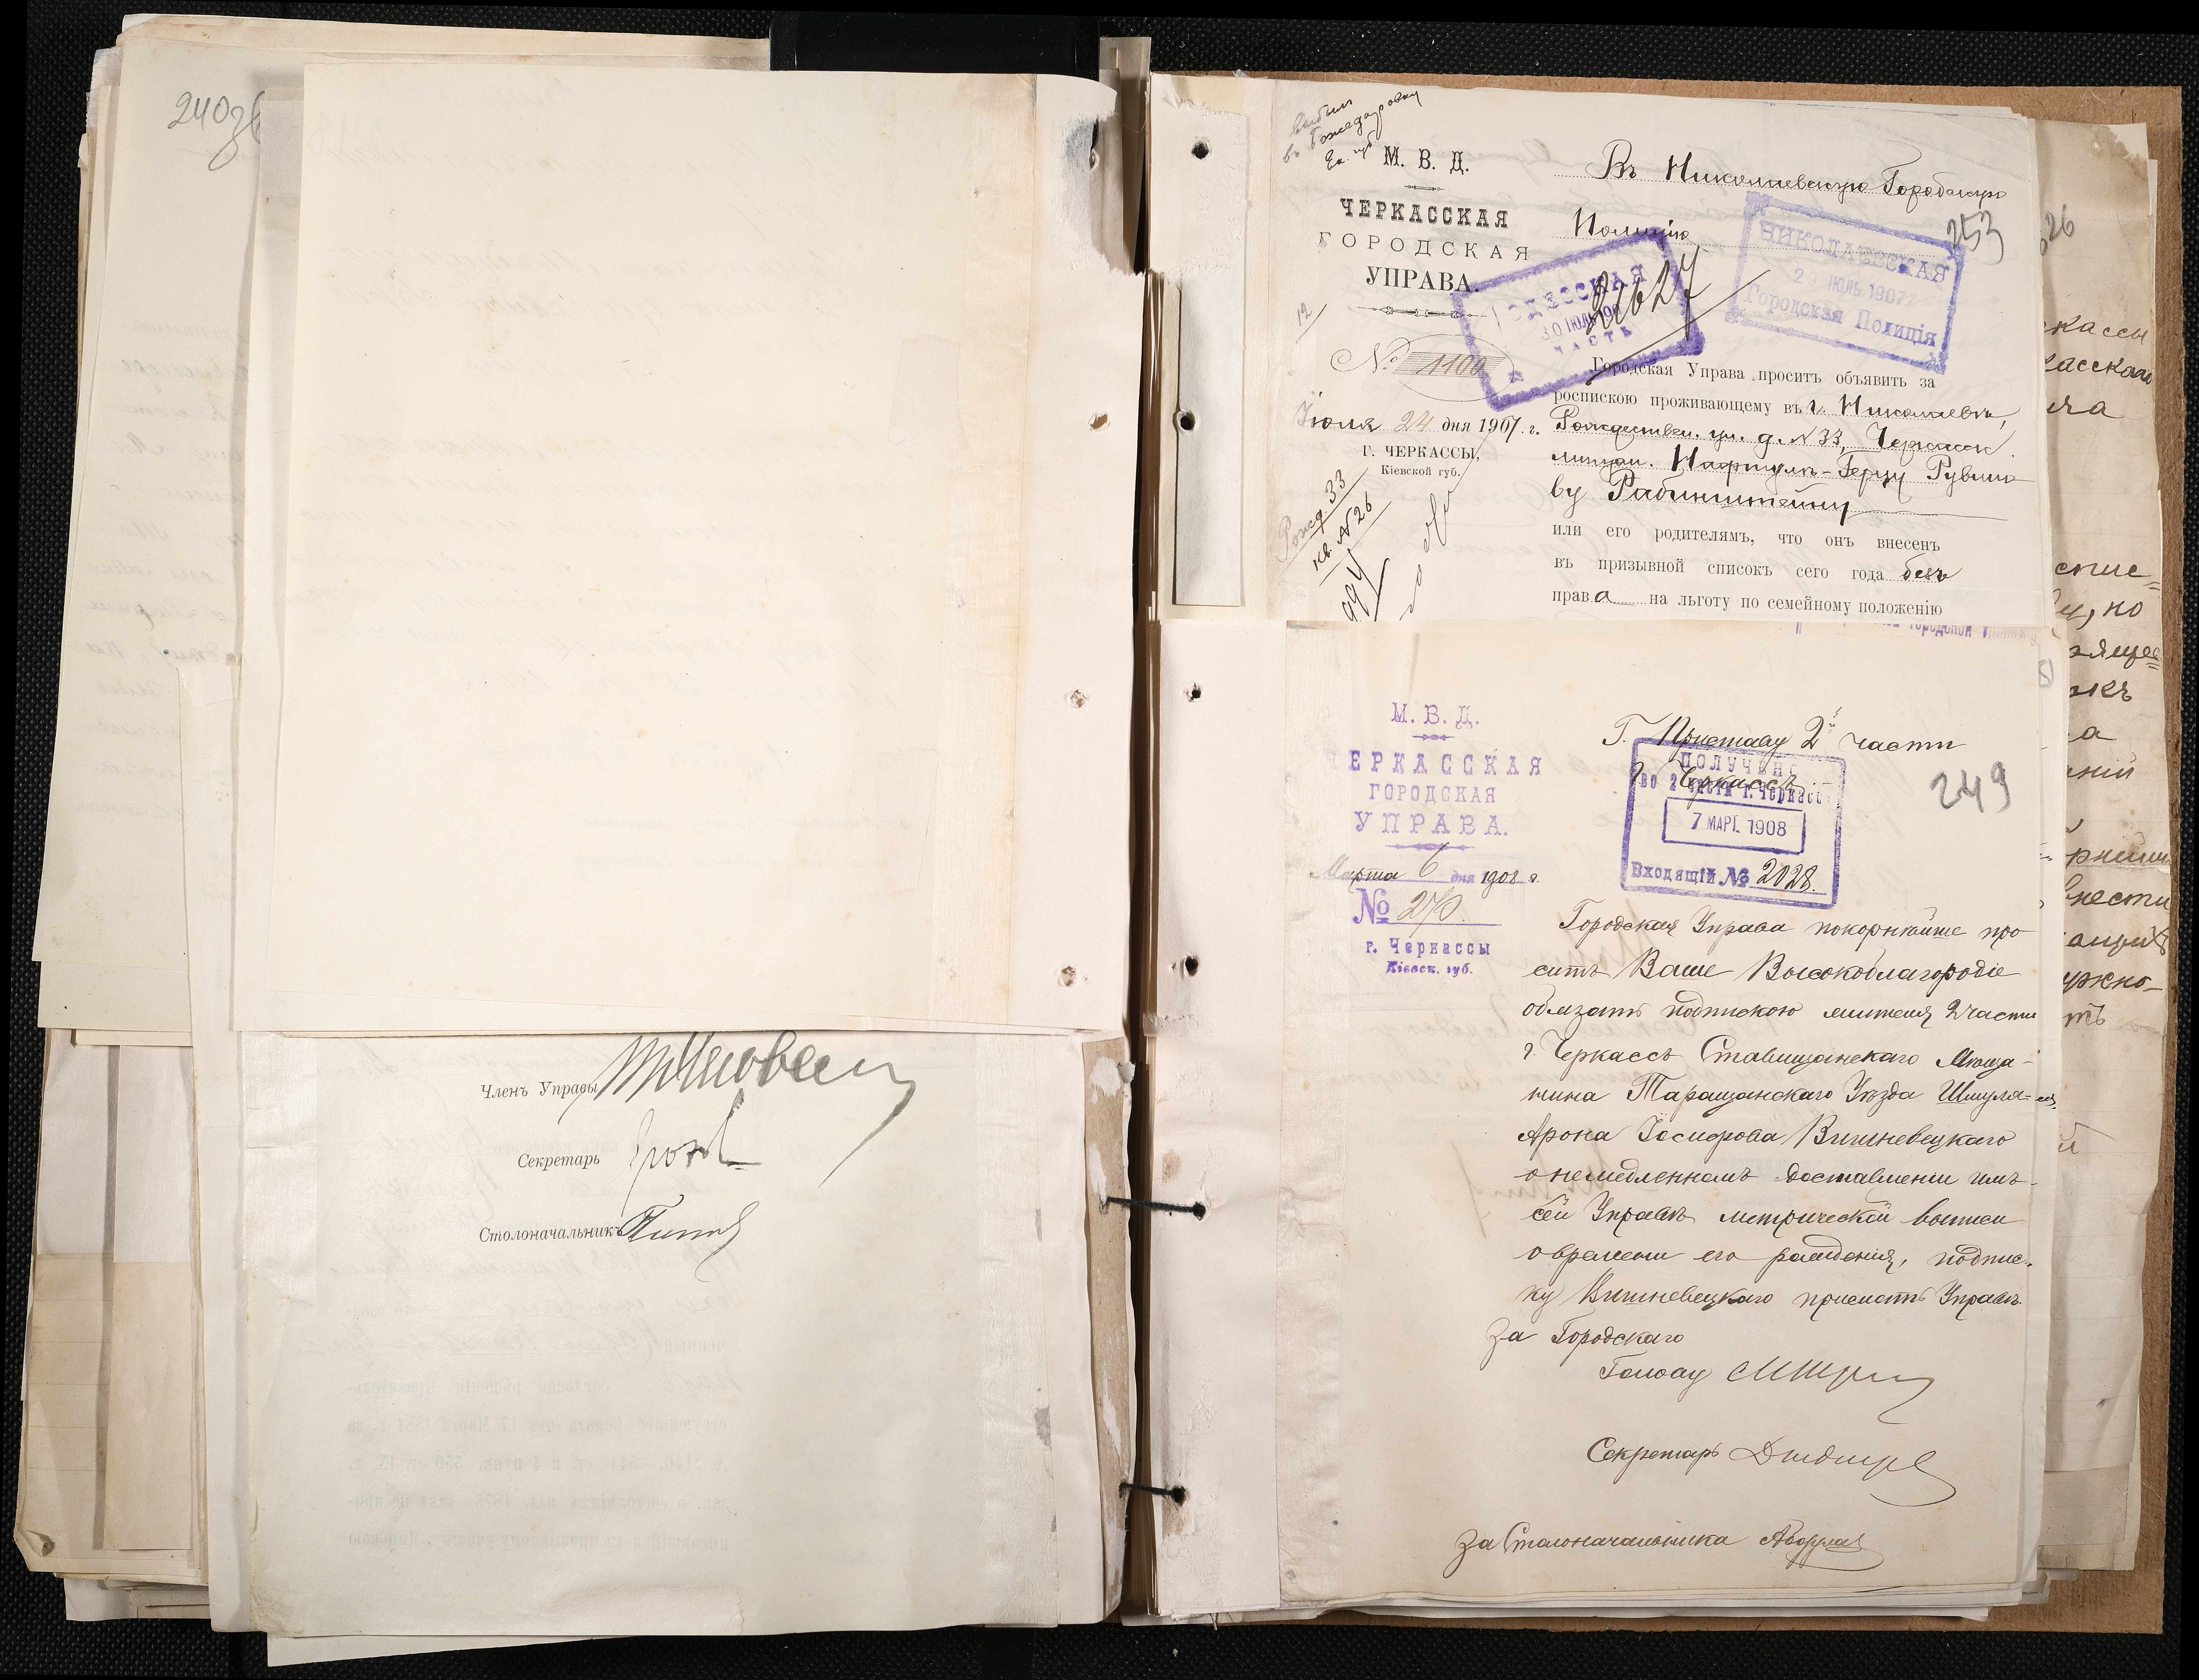 240
Членъ Управы
Секретарь
Столоначальникъ
выбылъ
въ Божедаровку
Ек. губ
М. В. Д.
ЧЕРКАССКАЯ
ГОРОДСКАЯ
УПРАВА.
12
№ 1100
Іюля 24 дня 1907 г.
Г. ЧЕРКАССЫ,
Кіевской губ.
Рожд. 33
кв. № 26
994
Въ Николаевскую Городскую
Полицію
253
ОДЕССКАЯ
30 ІЮЛ 190
ЧАСТЬ
НИКОЛАЕВСКАЯ
2 ІЮЛЬ 1907
Городская Полиція
Городская Управа проситъ объявить за
роспискою проживающему въ г. Николаевѣ,
Рождествен. ул. д. № 33, Черкасск.
мѣщан. Нафтулъ-Герцу Рувино
ву Рабинштейну
или его родителямъ, что онъ внесенъ
въ призывной списокъ сего года безъ
права на льготу по семейному положенію
М. В. Д.
ЧЕРКАССКАЯ
ГОРОДСКАЯ
УПРАВА.
Марта 6 дня 1908 г.
№ 270.
г. Черкассы
Кіевск. губ.
Г. Приставу 2й части
г. Черкассъ
249
ПОЛУЧЕНО
во 2 части г. Черкассъ
7 МАРТ. 1908
Входящій № 2028.
Городская Управа покорнѣйше про
ситъ Ваше Высокоблагородіе
обязать подпискою жителя 2 части
г. Черкассъ Ставищанскаго Мѣща-
нина Таращанскаго Уѣзда Шмуля-
Арона Іосифова Вишневецкаго
о немедленномъ доставленіи имъ
сей Управѣ метрической выписи
о времени его рожденія, подпис-
ку Вишневецкаго прислать Управѣ.
За Городского
Голову
Секретарь
За Столоначальника
26
кассы
касскаго
спис=
но
внести